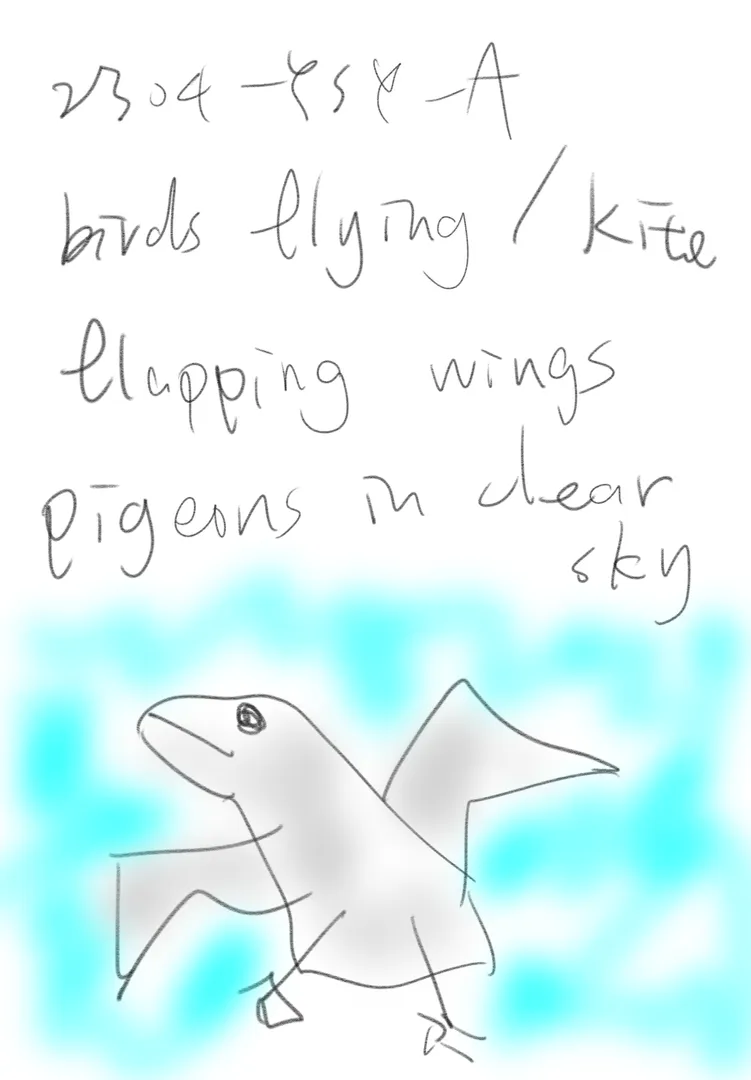 2304-4S4-A
birds flying / kite
flapping wings
pigeons in clear
sky